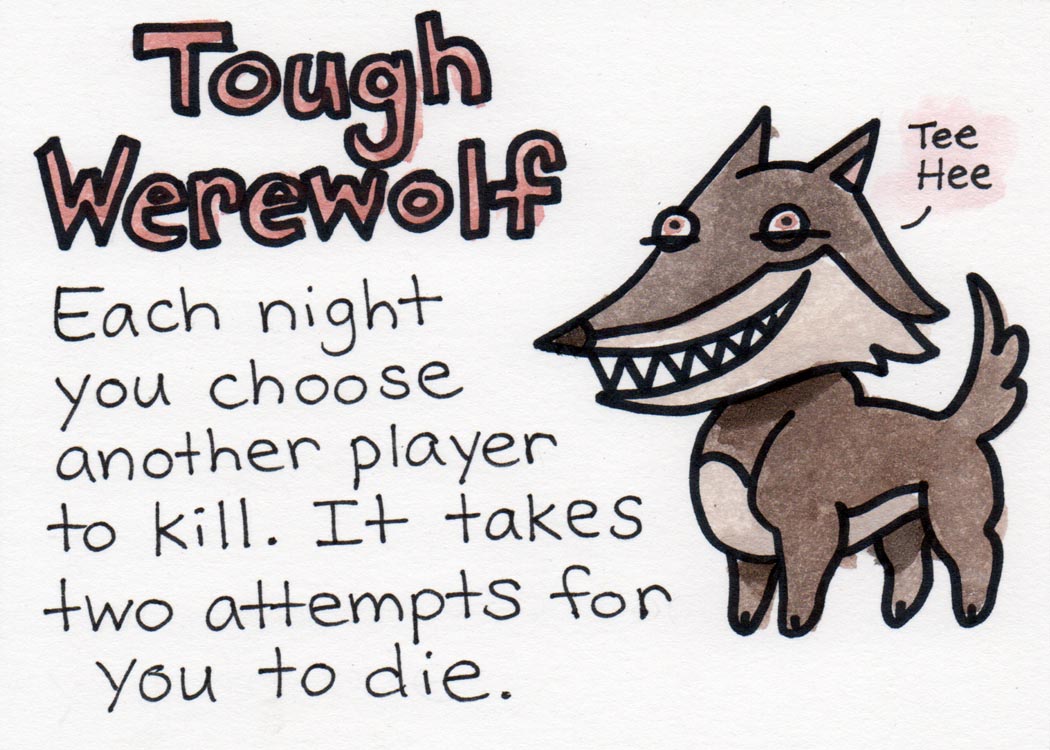 Tough
Werewolf
Tee
Hee
Each night
you choose
another player
to kill. It takes
two attempts for
you to die.